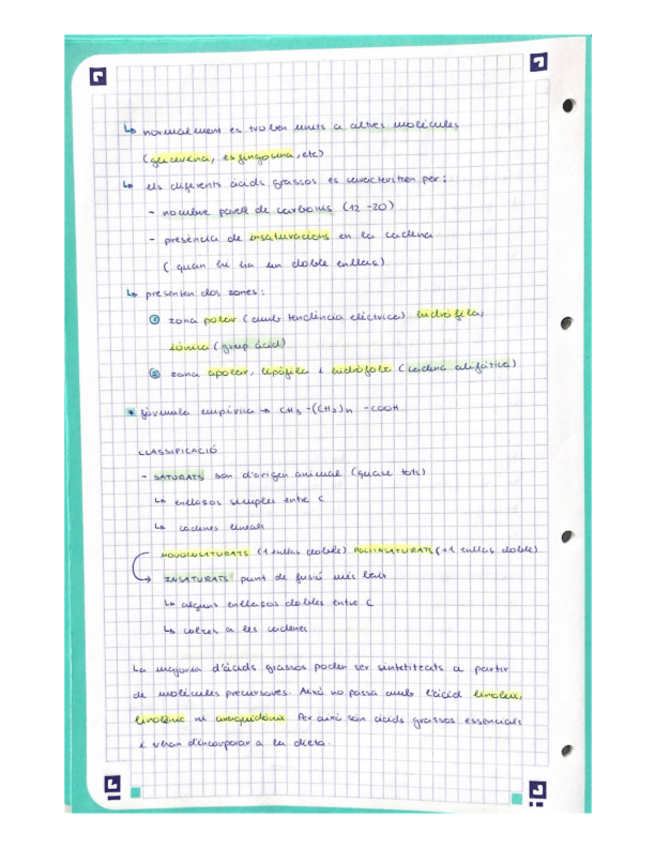 ↳ normalment es troben units a altres molècules
(glicerina, esfingosina, etc)
↳ els diferents àcids grassos es caracteritzen per:
- nombre parell de carbonis (12-20)
- presència de insaturacions en la cadena
(quan hi ha un doble enllaç)
↳ presenten dos zones:
① zona polar (amb tendència elèctrica) hidròfila,
iònica (grup àcid)
② zona apolar, lipòfila i hidròfoba (cadena alifàtica)
* fórmula empírica → CH3-(CH2)n -COOH
CLASSIFICACIÓ
- SATURATS són d'origen animal (quasi tots)
↳ enllaços simples entre C
↳ cadenes lineals
MONOINSATURATS (1 enllaç doble) POLIINSATURATS (+1 enllaç doble)
INSATURATS punt de fusió més baix
↳ alguns enllaços dobles entre C
↳ colzes a les cadenes
La majoria d'àcids grassos poden ser sintetitzats a partir
de molècules precursores. Això no passa amb l'àcid linoleic,
linolènic ni araquidònic. Per això són àcids grassos essencials
i s'han d'incorporar a la dieta.